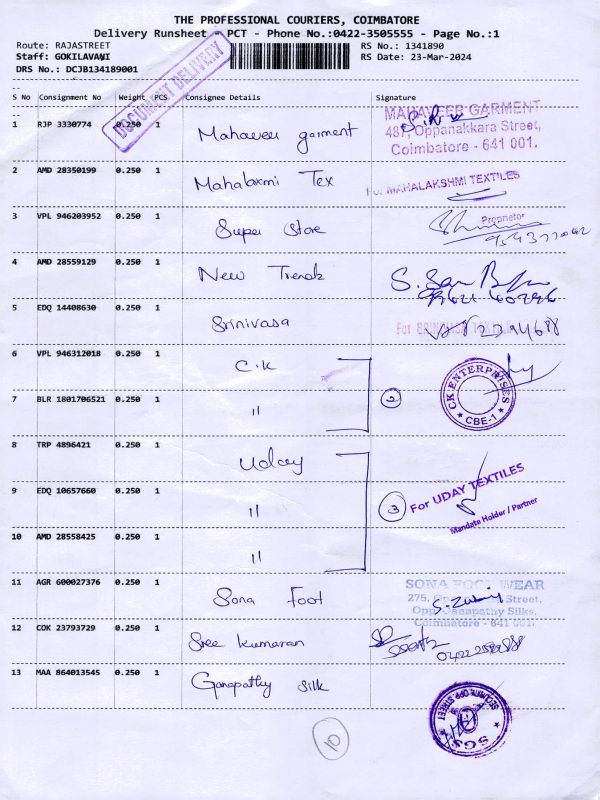 THE PROFESSIONAL COURIERS, COIMBATORE
Delivery Runsheet - PCT - Phone No.:0422-3505555 - Page No.:1
Route: RAJASTREET RS No.: 1341890
Staff: GOKILAVANI RS Date: 23-Mar-2024
DRS No.: DCJB134189001
DOCUMENT DELIVERY
S No Consignment No Weight PCS Consignee Details Signature
1 RJP 3330774 0.250 1 Mahaveer garment
MAHAVEER GARMENT
487, Oppanakkara Street,
Coimbatore - 641 001.
2 AMD 28350199 0.250 1 Mahalaxmi Tex For MAHALAKSHMI TEXTILES
Proprietor
3 VPL 946203952 0.250 1 Super Store
4 AMD 28559129 0.250 1 New Trendz
5 EDQ 14408630 0.250 1 Srinivasa For
6 VPL 946312018 0.250 1 C.K
CK ENTERPRISES
* CBE-1 *
7 BLR 1801706521 0.250 1 " 2
8 TRP 4896421 0.250 1 Uday
For UDAY TEXTILES
Mandate Holder / Partner
9 EDQ 10657660 0.250 1 " 3
10 AMD 28558425 0.250 1 "
11 AGR 600027376 0.250 1 Sona Foot
SONA FOOT WEAR
275, Street,
Opp. Ganapathy Silks,
Coimbatore - 641 001.
12 COK 23793729 0.250 1 Sree kumaran
13 MAA 864013545 0.250 1 Ganapathy silk
10